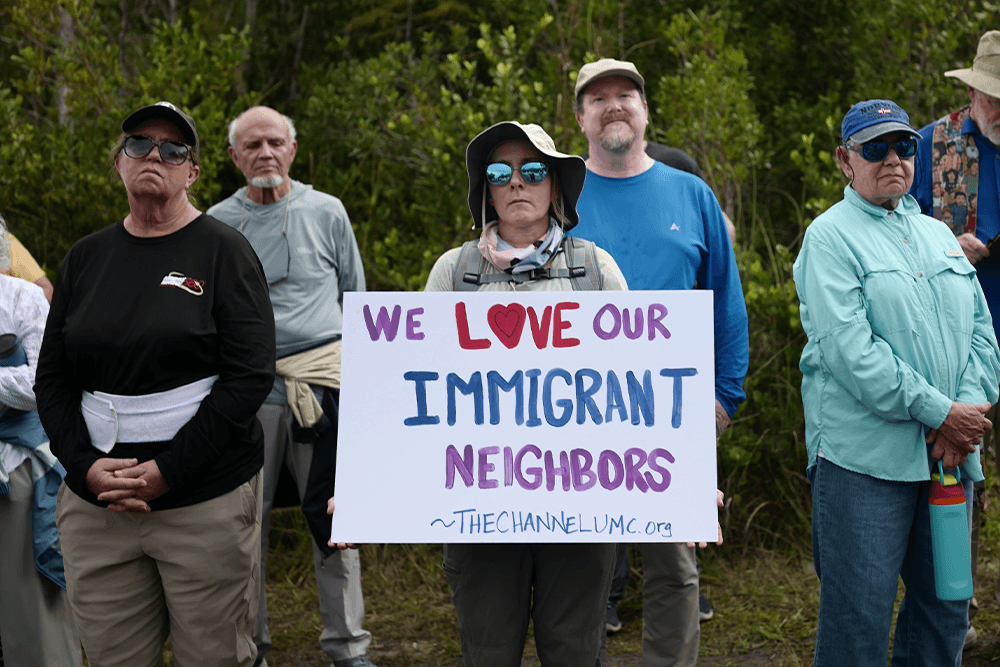 WE LOVE OUR
IMMIGRANT
NEIGHBORS
~THECHANNELUMC.org
NORWAY